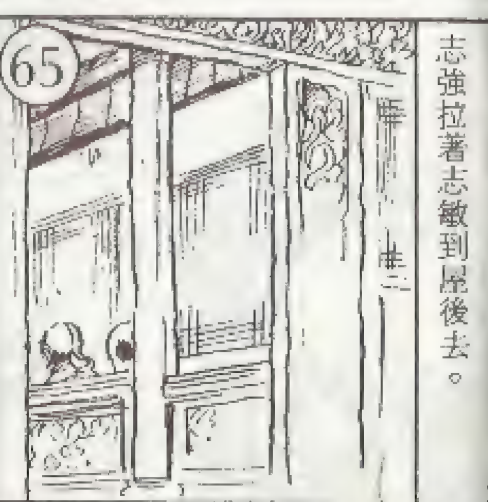 65
志強拉著志敏到屋後去。